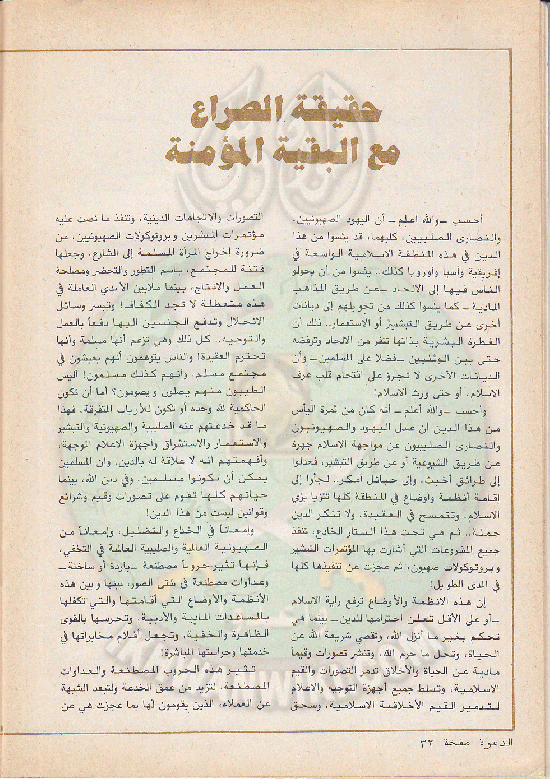 حقيقة الصراع
مع البقية المؤمنة
أحسب - والله أعلم - أن اليهود الصهيونيين،
والنصارى الصليبيين، كليهما، قد يئسوا من هذا
الدين في هذه المنطقة الاسلامية الواسعة في
إفريقية وآسيا وأوروبا كذلك.. يئسوا من أن يحولوا
الناس فيها إلى الالحاد - عن طريق المذاهب
المادية - كما يئسوا كذلك من تحويلهم إلى ديانات
أخرى عن طريق التبشير أو الاستعمار.. ذلك أن
الفطرة البشرية بذاتها تنفر من الالحاد وترفضه
حتى بين الوثنيين - فضلا على المسلمين - وأن
الديانات الأخرى لا تجرؤ على اقتحام قلب عرف
الاسلام، أو حتى ورث الاسلام!
وأحسب - والله أعلم - أنه كان من ثمرة اليأس
من هذا الدين أن عدل اليهود والصهيونيون
والنصارى الصليبيون عن مواجهة الاسلام جهرة
عن طريق الشيوعية أو عن طريق التبشير، فعدلوا
إلى طرائق أخبث، وإلى حبائل أمكر.. لجأوا إلى
اقامة أنظمة وأوضاع في المنطقة كلها تتزيا بزي
الاسلام.. وتتمسح في العقيدة، ولا تنكر الدين
جملة.. ثم هي تحت هذا الستار الخادع، تنفذ
جميع المشروعات التي أشارت بها مؤتمرات التبشير
وبروتوكولات صهيون، ثم عجزت عن تنفيذها كلها
في المدى الطويل!
إن هذه الانظمة والأوضاع ترفع راية الاسلام
- أو على الأقل تعلن احترامها للدين - بينما هي
تحكم بغير ما أنزل الله، وتقصي شريعة الله عن
الحياة، وتحل ما حرم الله، وتنشر تصورات وقيماً
مادية عن الحياة والأخلاق تدمر التصورات والقيم
الاسلامية، وتسلط جميع أجهزة التوجيه والاعلام
لتدمير القيم الأخلاقية الاسلامية، وسحق
التصورات والاتجاهات الدينية، وتنفذ ما نصت عليه
مؤتمرات المبشرين وبروتوكولات الصهيونيين، من
ضرورة اخراج المرأة المسلمة إلى الشارع، وجعلها
فتنة للمجتمع، باسم التطور والتحضر ومصلحة
العمل والانتاج، بينما ملايين الأيدي العاملة في
هذه متعطلة لا تجد الكفاف! وتيسر وسائل
الانحلال وتدفع الجنسين اليها دفعاً بالعمل
والتوجيه.. كل ذلك وهي تزعم أنها مسلمة وأنها
تحترم العقيدة! والناس يتوهمون أنهم يعيشون في
مجتمع مسلم، وأنهم كذلك مسلمون! أليس
الطيبون منهم يصلون ويصومون؟ أما أن تكون
الحاكمية لله وحده أو تكون للأرباب المتفرقة، فهذا
ما قد خدعتهم عنه الصليبية والصهيونية والتبشير
والاستعمار والاستشراق وأجهزة الاعلام الموجهة،
وأفهمتهم انه لا علاقة له بالدين، وأن المسلمين
يمكن أن يكونوا مسلمين، وفي دين الله، بينما
حياتهم كلها تقوم على تصورات وقيم وشرائع
وقوانين ليست من هذا الدين!
وإمعاناً في الخداع والتضليل، وإمعاناً من
الصهيونية العالمية والصليبية العالمية في التخفي،
فإنها تثير حروباً مصطنعة - باردة أو ساخنة -
وعداوات مصطنعة في شتى الصور، بينها وبين هذه
الأنظمة والأوضاع التي أقامتها والتي تكفلها
بالمساعدات المادية والأدبية، وتحرسها بالقوى
الظاهرة والخفية، وتجعل أقلام مخابراتها في
خدمتها وحراستها المباشرة!
تثير هذه الحروب المصطنعة والعداوات
المصطنعة، لتزيد من عمق الخدعة ولتبعد الشبهة
عن العملاء، الذين يقومون لها بما عجزت هي عن
الدعوة صفحة ٣٢